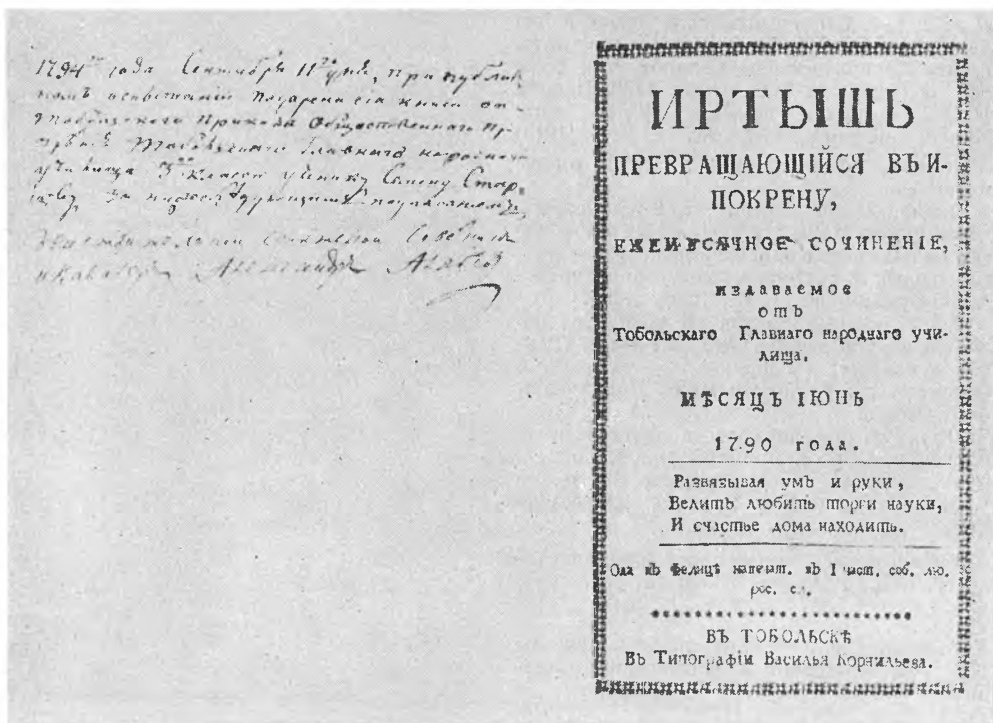 1794го года Сентября 11го дня, при публич-
номъ испытанiи подарена сiя книга отъ
Тобольскаго Приказа Общественнаго При-
зрѣнiя Тобольскаго Главнаго народнаго
училища 3го класса ученику
за
Александръ Алябьев
ИРТЫШЬ
ПРЕВРАЩАЮЩIЙСЯ ВЪ И-
ПОКРЕНУ,
ЕЖЕМѢСЯЧНОЕ СОЧИНЕНIЕ,
ИЗДАВАЕМОЕ
отЪ
Тобольскаго Главнаго народнаго учи-
лища.
МѢСЯЦЪ IЮНЬ
1790 года.
Развязывая умЪ и руки,
ВелитЪ любить торги науки,
И счастье дома находить.
Ода кЪ Фелицѣ напечат. вЪ I част. соб. лю.
рос. сл.
ВЪ ТОБОЛЬСКѢ
ВЪ Типографiи Василья Корнильева.